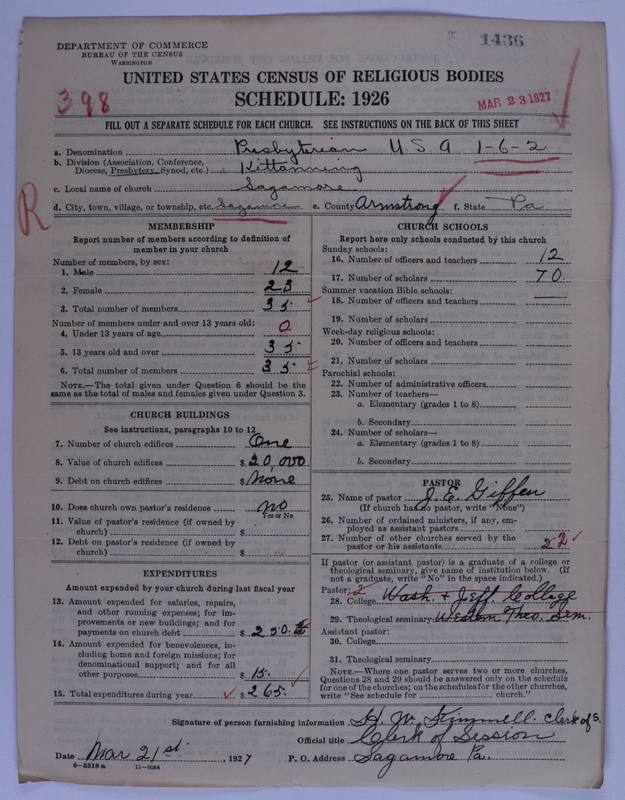 1436
DEPARTMENT OF COMMERCE
BUREAU OF THE CENSUS
WASHINGTON
UNITED STATES CENSUS OF RELIGIOUS BODIES
398
SCHEDULE: 1926
MAR 23 1927
FILL OUT A SEPARATE SCHEDULE FOR EACH CHURCH. SEE INSTRUCTIONS ON THE BACK OF THIS SHEET
a. Denomination Presbyterian U S A 1-6-2
b. Division (Association, Conference, Diocese, Presbytery, Synod, etc.) Kittanning
c. Local name of church Sagamore
d. City, town, village, or township, etc. Sagamore e. County Armstrong f. State Pa
R
MEMBERSHIP
Report number of members according to definition of
member in your church
Number of members, by sex:
1. Male 12
2. Female 23
3. Total number of members 35
Number of members under and over 13 years old:
4. Under 13 years of age 0
5. 13 years old and over 35
6. Total number of members 35
NOTE.—The total given under Question 6 should be the
same as the total of males and females given under Question 3.
CHURCH BUILDINGS
See instructions, paragraphs 10 to 12
7. Number of church edifices One
8. Value of church edifices $ 20,000
9. Debt on church edifices $ None
10. Does church own pastor's residence? no
Yes or No
11. Value of pastor's residence (if owned by
church) $
12. Debt on pastor's residence (if owned by
church) $
EXPENDITURES
Amount expended by your church during last fiscal year
13. Amount expended for salaries, repairs,
and other running expenses; for im-
provements or new buildings; and for
payments on church debt $ 250.
14. Amount expended for benevolences, in-
cluding home and foreign missions; for
denominational support; and for all
other purposes $ 15.
15. Total expenditures during year $ 265.
CHURCH SCHOOLS
Report here only schools conducted by this church
Sunday schools:
16. Number of officers and teachers 12
17. Number of scholars 70
Summer vacation Bible schools:
18. Number of officers and teachers
19. Number of scholars
Week-day religious schools:
20. Number of officers and teachers
21. Number of scholars
Parochial schools:
22. Number of administrative officers
23. Number of teachers—
a. Elementary (grades 1 to 8)
b. Secondary
24. Number of scholars—
a. Elementary (grades 1 to 8)
b. Secondary
PASTOR
25. Name of pastor J. E. Giffen
(If church has no pastor, write "None")
26. Number of ordained ministers, if any, em-
ployed as assistant pastors
27. Number of other churches served by the
pastor or his assistants 2 2
If pastor (or assistant pastor) is a graduate of a college or
theological seminary, give name of institution below. (If
not a graduate, write "No" in the space indicated.)
Pastor: 2
28. College Wash. + Jeff College
29. Theological seminary Western Theo. Sem.
Assistant pastor:
30. College
31. Theological seminary
NOTE.—Where one pastor serves two or more churches,
Questions 28 and 29 should be answered only on the schedule
for one of the churches; on the schedules for the other churches,
write "See schedule for church."
Signature of person furnishing information H. W. Kimmell. Clerk of S.
Official title Clerk of Session
Date Mar 21st, 1927 P. O. Address Sagamore Pa.
6-5518a 11-9064